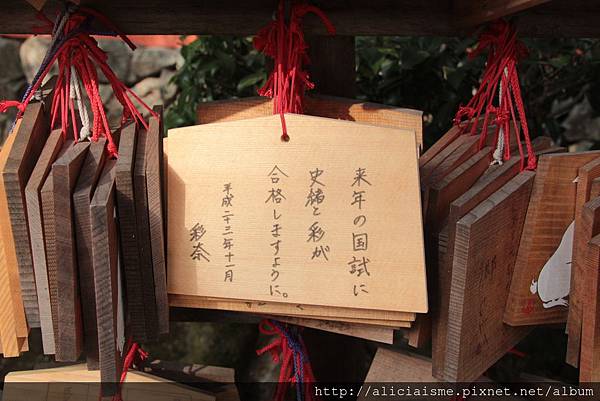 来年の国試に
史緒と彩が
合格しますように。
平成二十三年十一月
彩奈
http://aliciawei.pixnet.net/album